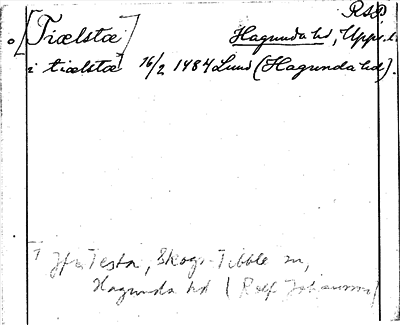 RSB
[Tiælstæ] Hagunda hd, Upps. l.
i tiælstæ 16/2 1484 Lund (Hagunda hd).
Jfr Testa, Skogs-Tibble sn,
Hagunda hd (Ralf Johansson)